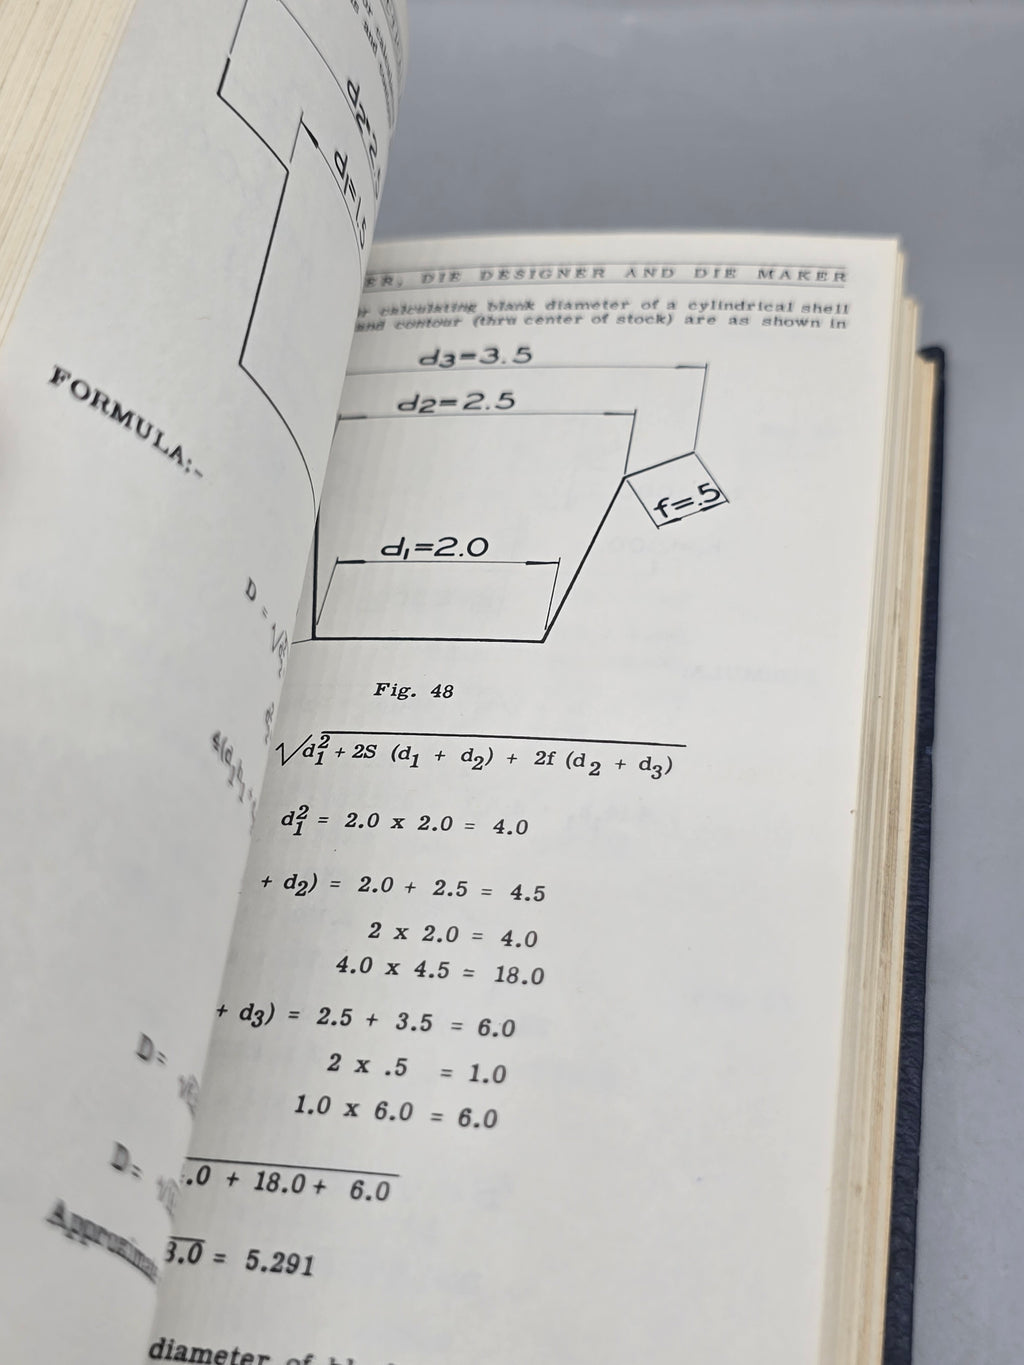 d2=2.5
d1=1.5
FORMULA:-
D =
D=
D=
ER, DIE DESIGNER AND DIE MAKER
calculating blank diameter of a cylindrical shell
and contour (thru center of stock) are as shown in
d3=3.5
d2=2.5
f=.5
d1=2.0
Fig. 48
√d1² + 2S (d1 + d2) + 2f (d2 + d3)
d1² = 2.0 x 2.0 = 4.0
+ d2) = 2.0 + 2.5 = 4.5
2 x 2.0 = 4.0
4.0 x 4.5 = 18.0
+ d3) = 2.5 + 3.5 = 6.0
2 x .5 = 1.0
1.0 x 6.0 = 6.0
.0 + 18.0 + 6.0
.0 = 5.291
diameter of